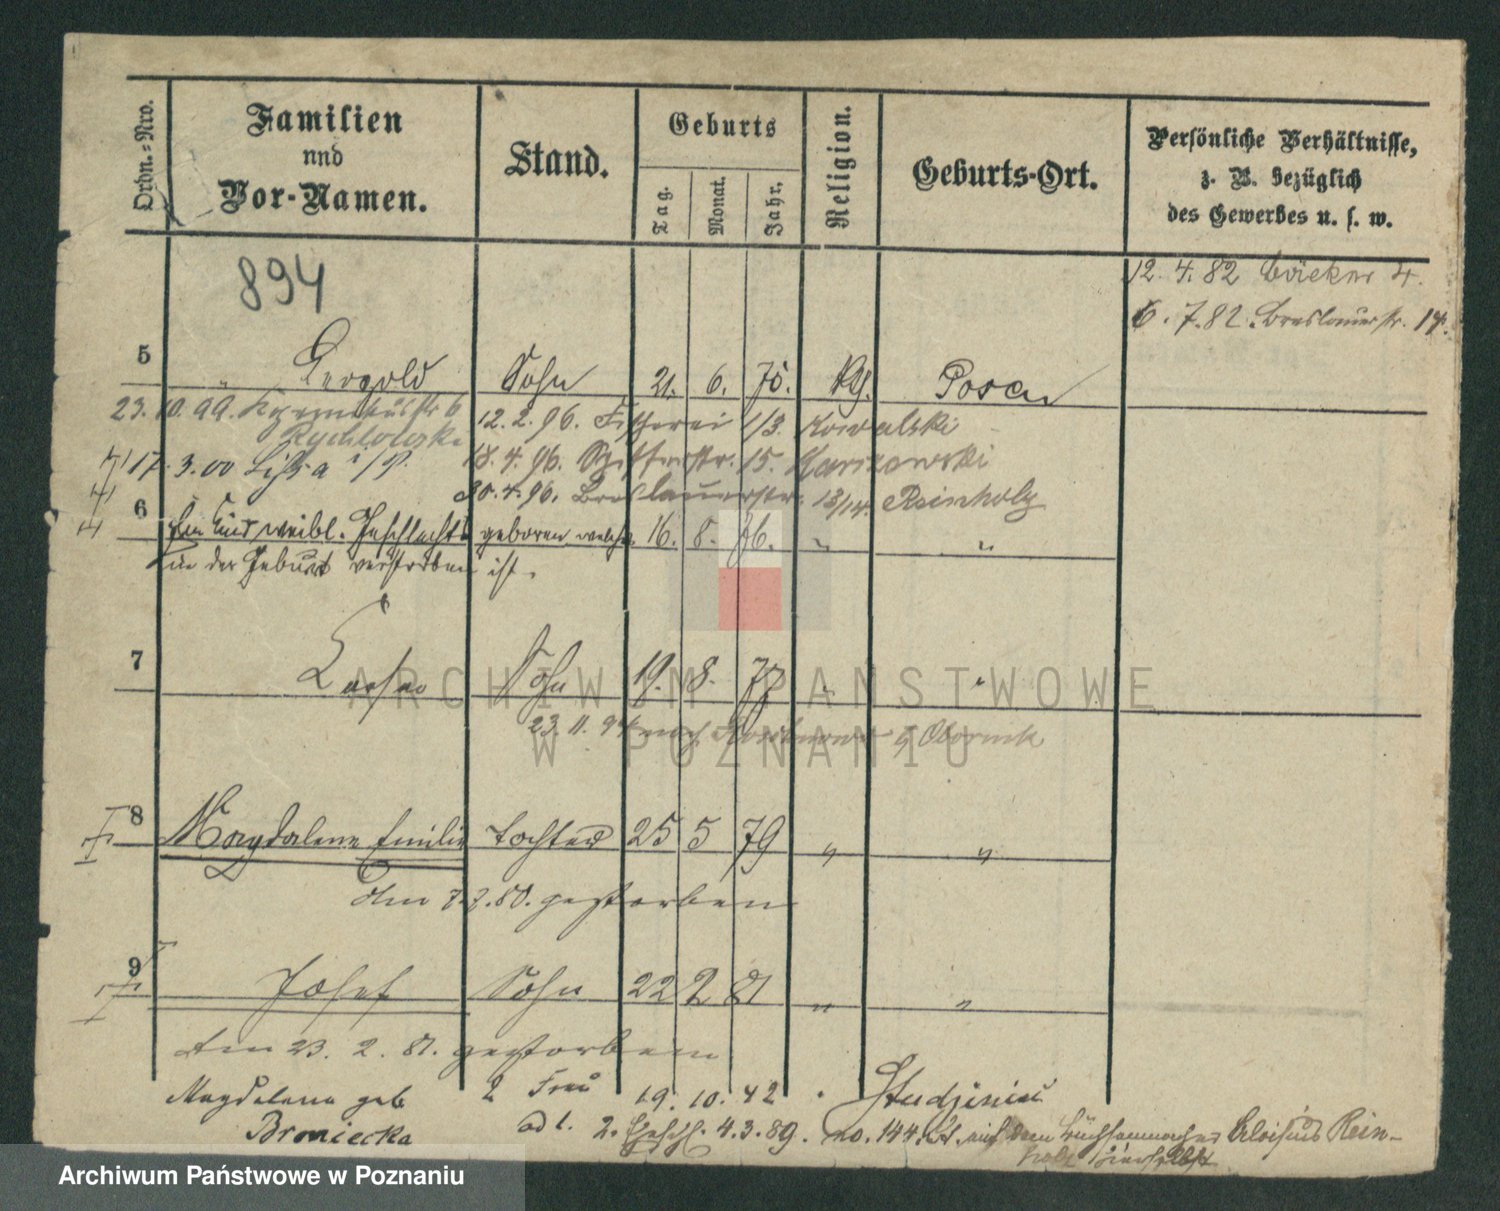 Ordn.-Nro.
Familien
und
Vor-Namen.
Stand.
Geburts
Tag.
Monat.
Jahr.
Religion.
Geburts-Ort.
Persönliche Verhältnisse,
z. B. bezüglich
des Gewerbes u. s. w.
894
12. 4. 82
6. 7. 82. Breslauerstr. 14.
5 " Leopold Sohn 21. 6. 75. Posen
23. 10. 99.
12. 2. 96. Fischerei 1/3. Kowalski
Rychlowski
17. 3. 00 Lissa i/P.
18. 4. 96. 15.
30. 4. 96. Breslauerstr. 13/14. Reinholz
6 Ein Kind weibl. Geschlechts geboren welches 16. 8. 76. " "
in der Geburt verstorben ist.
7 Sohn 19. 8. 77 " "
23. 11. 94 nach Obornik
8 Magdalena Emilie Tochter 25 5 79 " "
gestorben
9 Josef Sohn 22 2 81 " "
Am 23. 2. 81. gestorben
Magdalena geb 2 Frau 19. 10. 42
Broniecka
ad 1. 2. 4. 3. 89. no. 144. St. mit dem Büchsenmacher Aloisius Rein-
holz hierselbst
ARCHIWUM PAŃSTWOWE
W POZNANIU
Archiwum Państwowe w Poznaniu